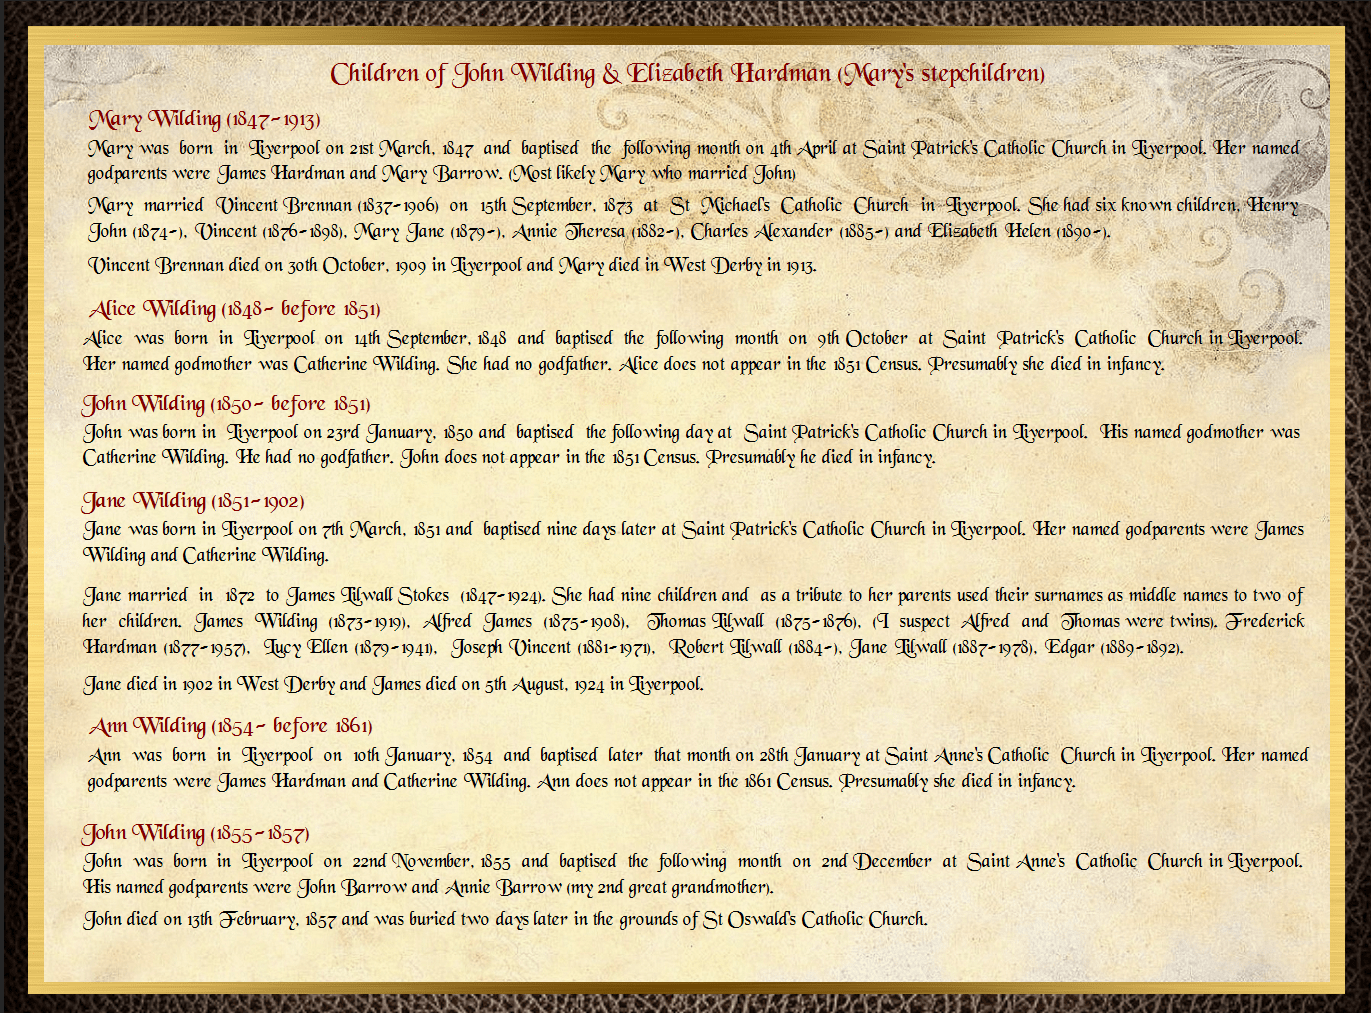 Children of John Wilding & Elizabeth Hardman (Mary's stepchildren)
Mary Wilding (1847-1913)
Mary was born in Liverpool on 21st March, 1847 and baptised the following month on 4th April at Saint Patrick's Catholic Church in Liverpool. Her named
godparents were James Hardman and Mary Barrow. (Most likely Mary who married John)
Mary married Vincent Brennan (1837-1906) on 15th September, 1873 at St Michael's Catholic Church in Liverpool. She had six known children, Henry
John (1874-), Vincent (1876-1898), Mary Jane (1879-), Annie Theresa (1882-), Charles Alexander (1885-) and Elizabeth Helen (1890-).
Vincent Brennan died on 30th October, 1909 in Liverpool and Mary died in West Derby in 1913.
Alice Wilding (1848- before 1851)
Alice was born in Liverpool on 14th September, 1848 and baptised the following month on 9th October at Saint Patrick's Catholic Church in Liverpool.
Her named godmother was Catherine Wilding. She had no godfather. Alice does not appear in the 1851 Census. Presumably she died in infancy.
John Wilding (1850- before 1851)
John was born in Liverpool on 23rd January, 1850 and baptised the following day at Saint Patrick's Catholic Church in Liverpool. His named godmother was
Catherine Wilding. He had no godfather. John does not appear in the 1851 Census. Presumably he died in infancy.
Jane Wilding (1851-1902)
Jane was born in Liverpool on 7th March, 1851 and baptised nine days later at Saint Patrick's Catholic Church in Liverpool. Her named godparents were James
Wilding and Catherine Wilding.
Jane married in 1872 to James Lilwall Stokes (1847-1924). She had nine children and as a tribute to her parents used their surnames as middle names to two of
her children. James Wilding (1873-1919), Alfred James (1875-1908), Thomas Lilwall (1875-1876), (I suspect Alfred and Thomas were twins). Frederick
Hardman (1877-1957), Lucy Ellen (1879-1941), Joseph Vincent (1881-1971), Robert Lilwall (1884-), Jane Lilwall (1887-1978), Edgar (1889-1892).
Jane died in 1902 in West Derby and James died on 5th August, 1924 in Liverpool.
Ann Wilding (1854- before 1861)
Ann was born in Liverpool on 10th January, 1854 and baptised later that month on 28th January at Saint Anne's Catholic Church in Liverpool. Her named
godparents were James Hardman and Catherine Wilding. Ann does not appear in the 1861 Census. Presumably she died in infancy.
John Wilding (1855-1857)
John was born in Liverpool on 22nd November, 1855 and baptised the following month on 2nd December at Saint Anne's Catholic Church in Liverpool.
His named godparents were John Barrow and Annie Barrow (my 2nd great grandmother).
John died on 13th February, 1857 and was buried two days later in the grounds of St Oswald's Catholic Church.